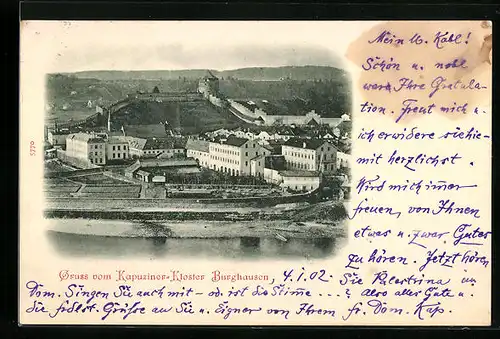 Mein l. Kobl!
Schön u. nobl
war Ihre Gratula-
tion. Freut mich u.
ich erwidere sie hie-
mit herzlichst.
Wird mich imer
freuen, von Ihnen
etwas u. zwar Gutes
zu hören. Jetzt hören
Gruss vom Kapuziner-Kloster Burghausen, 4. I. 02.
Sie Palestrina im
Dom. Singen Sie auch mit – od. ist die Stime ...? Also alles Gute u.
Sie fidelst. Grüße an Sie u. Eigner von Ihrem fr. Dom. Kap.
5770